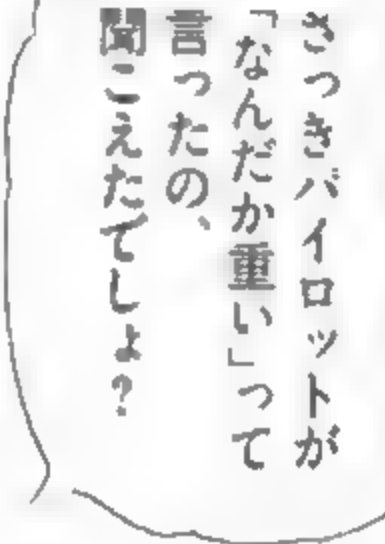 さっきパイロットが
「なんだか重い」って
言ったの、
聞こえたでしょ？